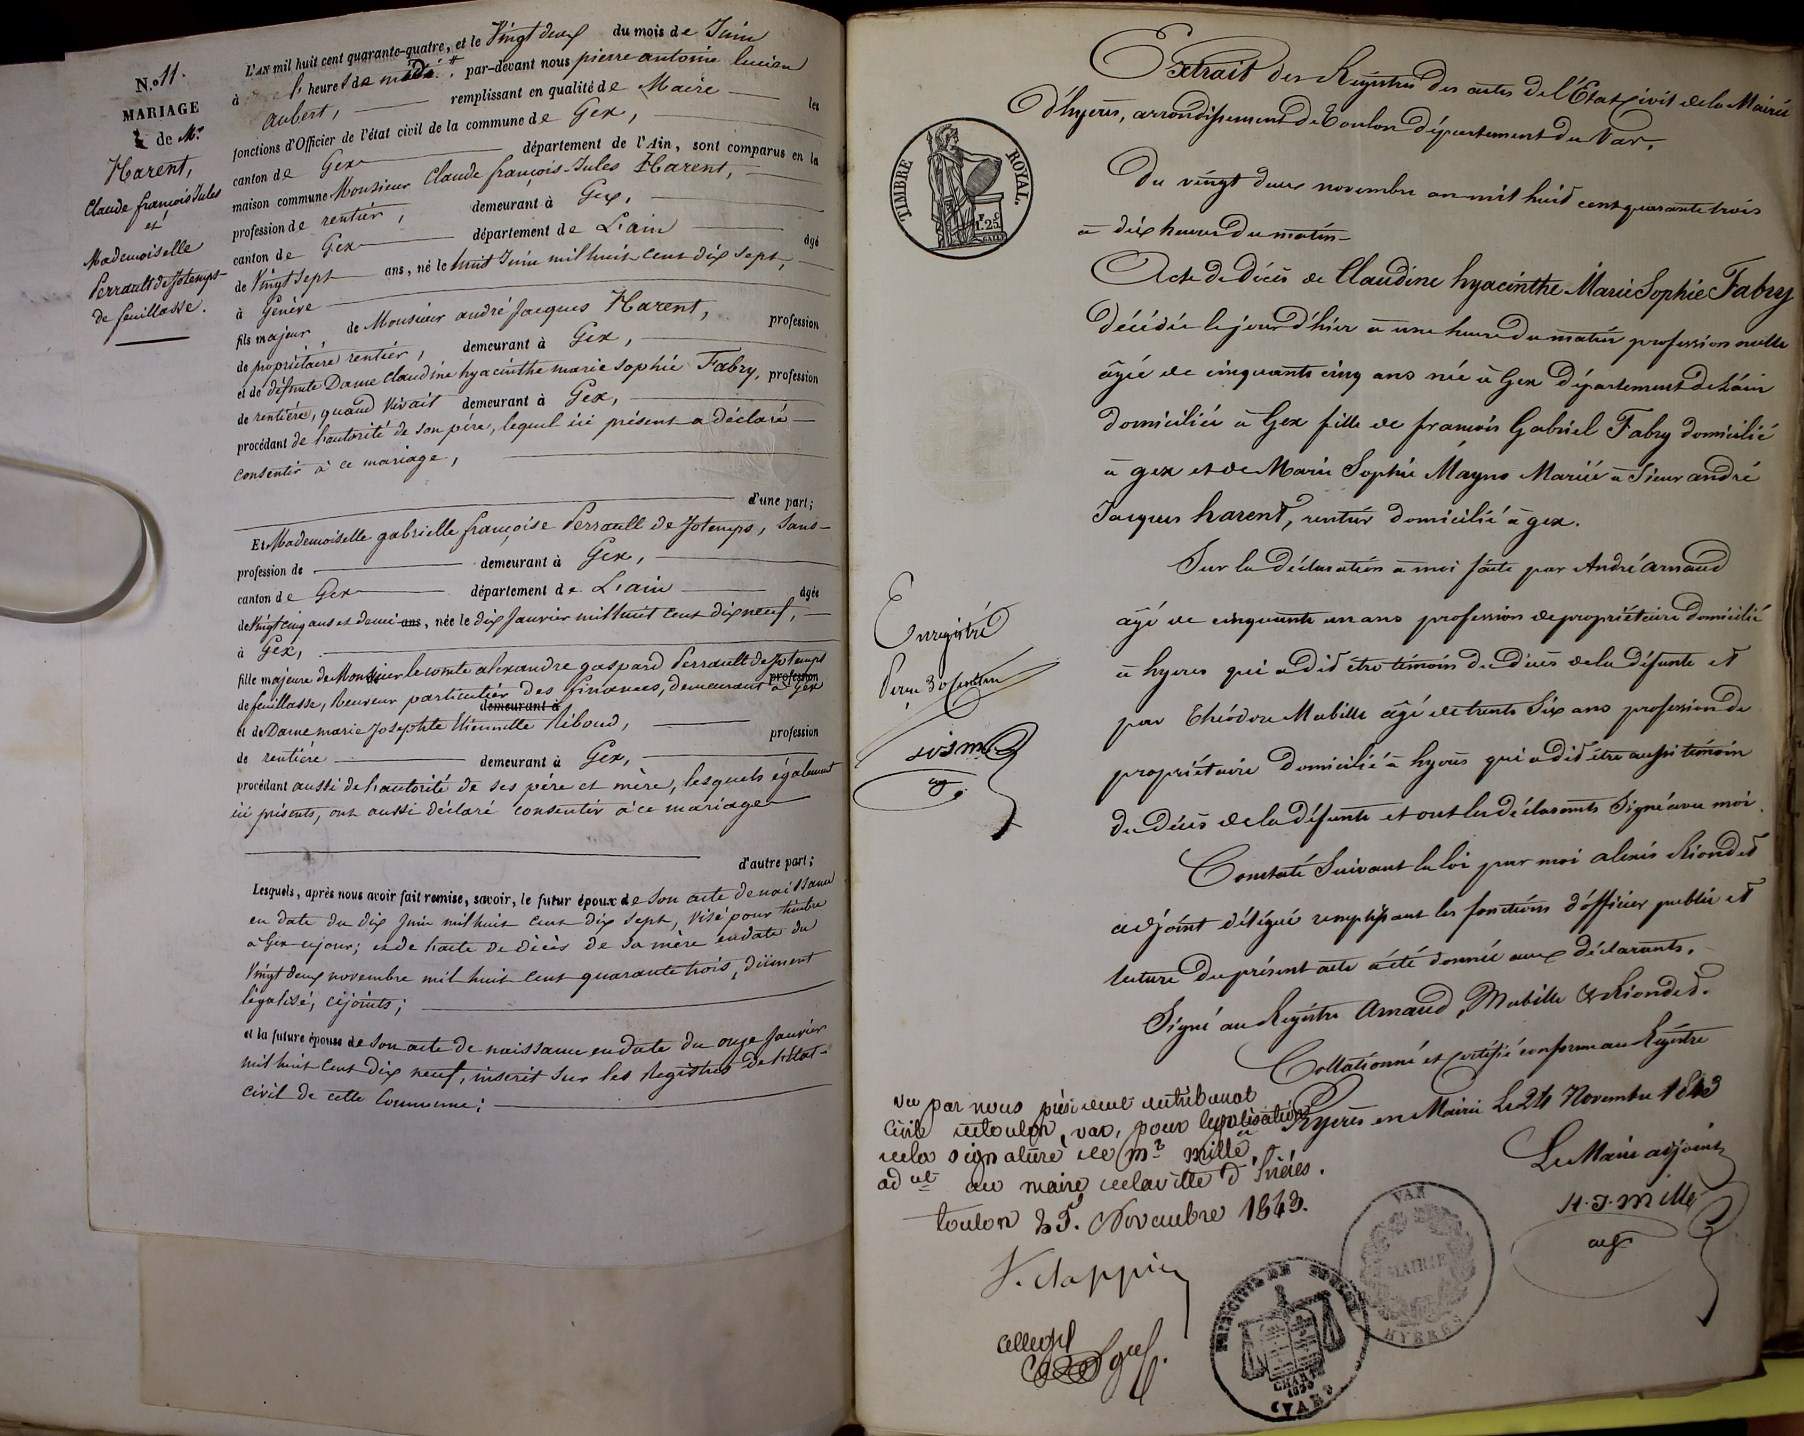 N.o 11.
MARIAGE
de Mr
Harent,
Claude françois Jules
et
Mademoiselle
Perrault de Jotemps
de feuillasse.
L'AN mil huit cent quarante-quatre, et le Vingt deux du mois de Juin
à heure de midi par-devant nous pierre antoine lucien
aubert, remplissant en qualité de Maire les
fonctions d'Officier de l'état civil de la commune de Gex,
canton de Gex département de l'Ain, sont comparus en la
maison commune Monsieur Claude françois-Jules Harent,
profession de rentier, demeurant à Gex,
canton de Gex département de L'ain âgé
de Vingt sept ans, né le huit Juin mil huit cent dix sept,
à Genève
fils majeur de Monsieur andré Jacques Harent, profession
de propriétaire rentier, demeurant à Gex,
et de défunte Dame Claudine hyacinthe marie Sophie Fabry, profession
de rentière, quand vivait demeurant à Gex,
procédant de l'autorité de son père, lequel ici présent a déclaré
consentir à ce mariage,
d'une part;
Et Mademoiselle gabrielle françoise Perrault de Jotemps, Sans
profession de demeurant à Gex,
canton de Gex département de L'ain âgée
de Vingt cinq ans et demi ans, née le dix Janvier mil huit cent dix neuf,
à Gex,
fille majeure de Monsieur le comte alexandre gaspard Perrault de Jotemps
profession
de feuillasse, Receveur particulier des finances, demeurant à Gex
demeurant à
et de Dame marie Josephte Etiennette Riboud, profession
de rentière demeurant à Gex,
procédant aussi de l'autorité de ses père et mère, lesquels également
ici présents, ont aussi déclaré consentir à ce mariage
d'autre part;
Lesquels, après nous avoir fait remise, savoir, le futur époux de son acte de naissance
en date du dix Juin mil huit cent dix sept, Visé pour timbre
à Gex ce jour; et de l'acte de décès de sa mère en date du
Vingt deux novembre mil huit cent quarante trois, dûment
légalisé, cijoints;
et la future épouse de son acte de naissance en date du onze Janvier
mil huit cent dix neuf, inscrit sur les Registres de l'état-
civil de cette Commune;
Extrait des Registres des actes de l'État Civil de la Mairie
d'hyeres, arrondissement de Toulon département du Var.
TIMBRE ROYAL
1.25
Du vingt deux novembre an mil huit cent quarante trois
a dix heures du matin
Acte de décès de Claudine hyacinthe Marie Sophie Fabry
décédée le jour d'hier a une heure du matin profession nulle
âgée de cinquante cinq ans née à Gex département de L'ain
domiciliée à Gex fille de françois Gabriel Fabry domicilié
à gex et de Marie Sophie Mayno Mariée à Sieur andré
Jacques harent, rentier domicilié à gex.
Sur la déclaration a moi faite par André Arnaud
âgé de cinquante un ans profession de propriétaire domicilié
à hyeres qui a dit être témoin du décès de la défunte et
par Théodore Mabille âgé de trente Six ans profession de
propriétaire domicilié à hyeres qui a dit être aussi témoin
du décès de la défunte et ont les déclarants Signé avec moi.
Constaté Suivant la loi par moi alexis Riondet
adjoint délégué remplissant les fonctions d'officier public et
lecture du présent acte a été donnée aux déclarants.
Signé au Registre Arnaud, Mabille & Riondet.
Collationné et certifié conforme au Registre
Hyeres en Mairie Le 24 Novembre 1843
Le Maire adjoint
H. J. Mille
adj
Enregistré
vu par nous président du tribunal
civil de toulon, var, pour légalisation
de la signature de Mr Mille,
adt au maire de la ville d'hières.
toulon 25. Novembre 1843.
VAR
MAIRIE
HYERES
CHARTE
1830
(VAR)